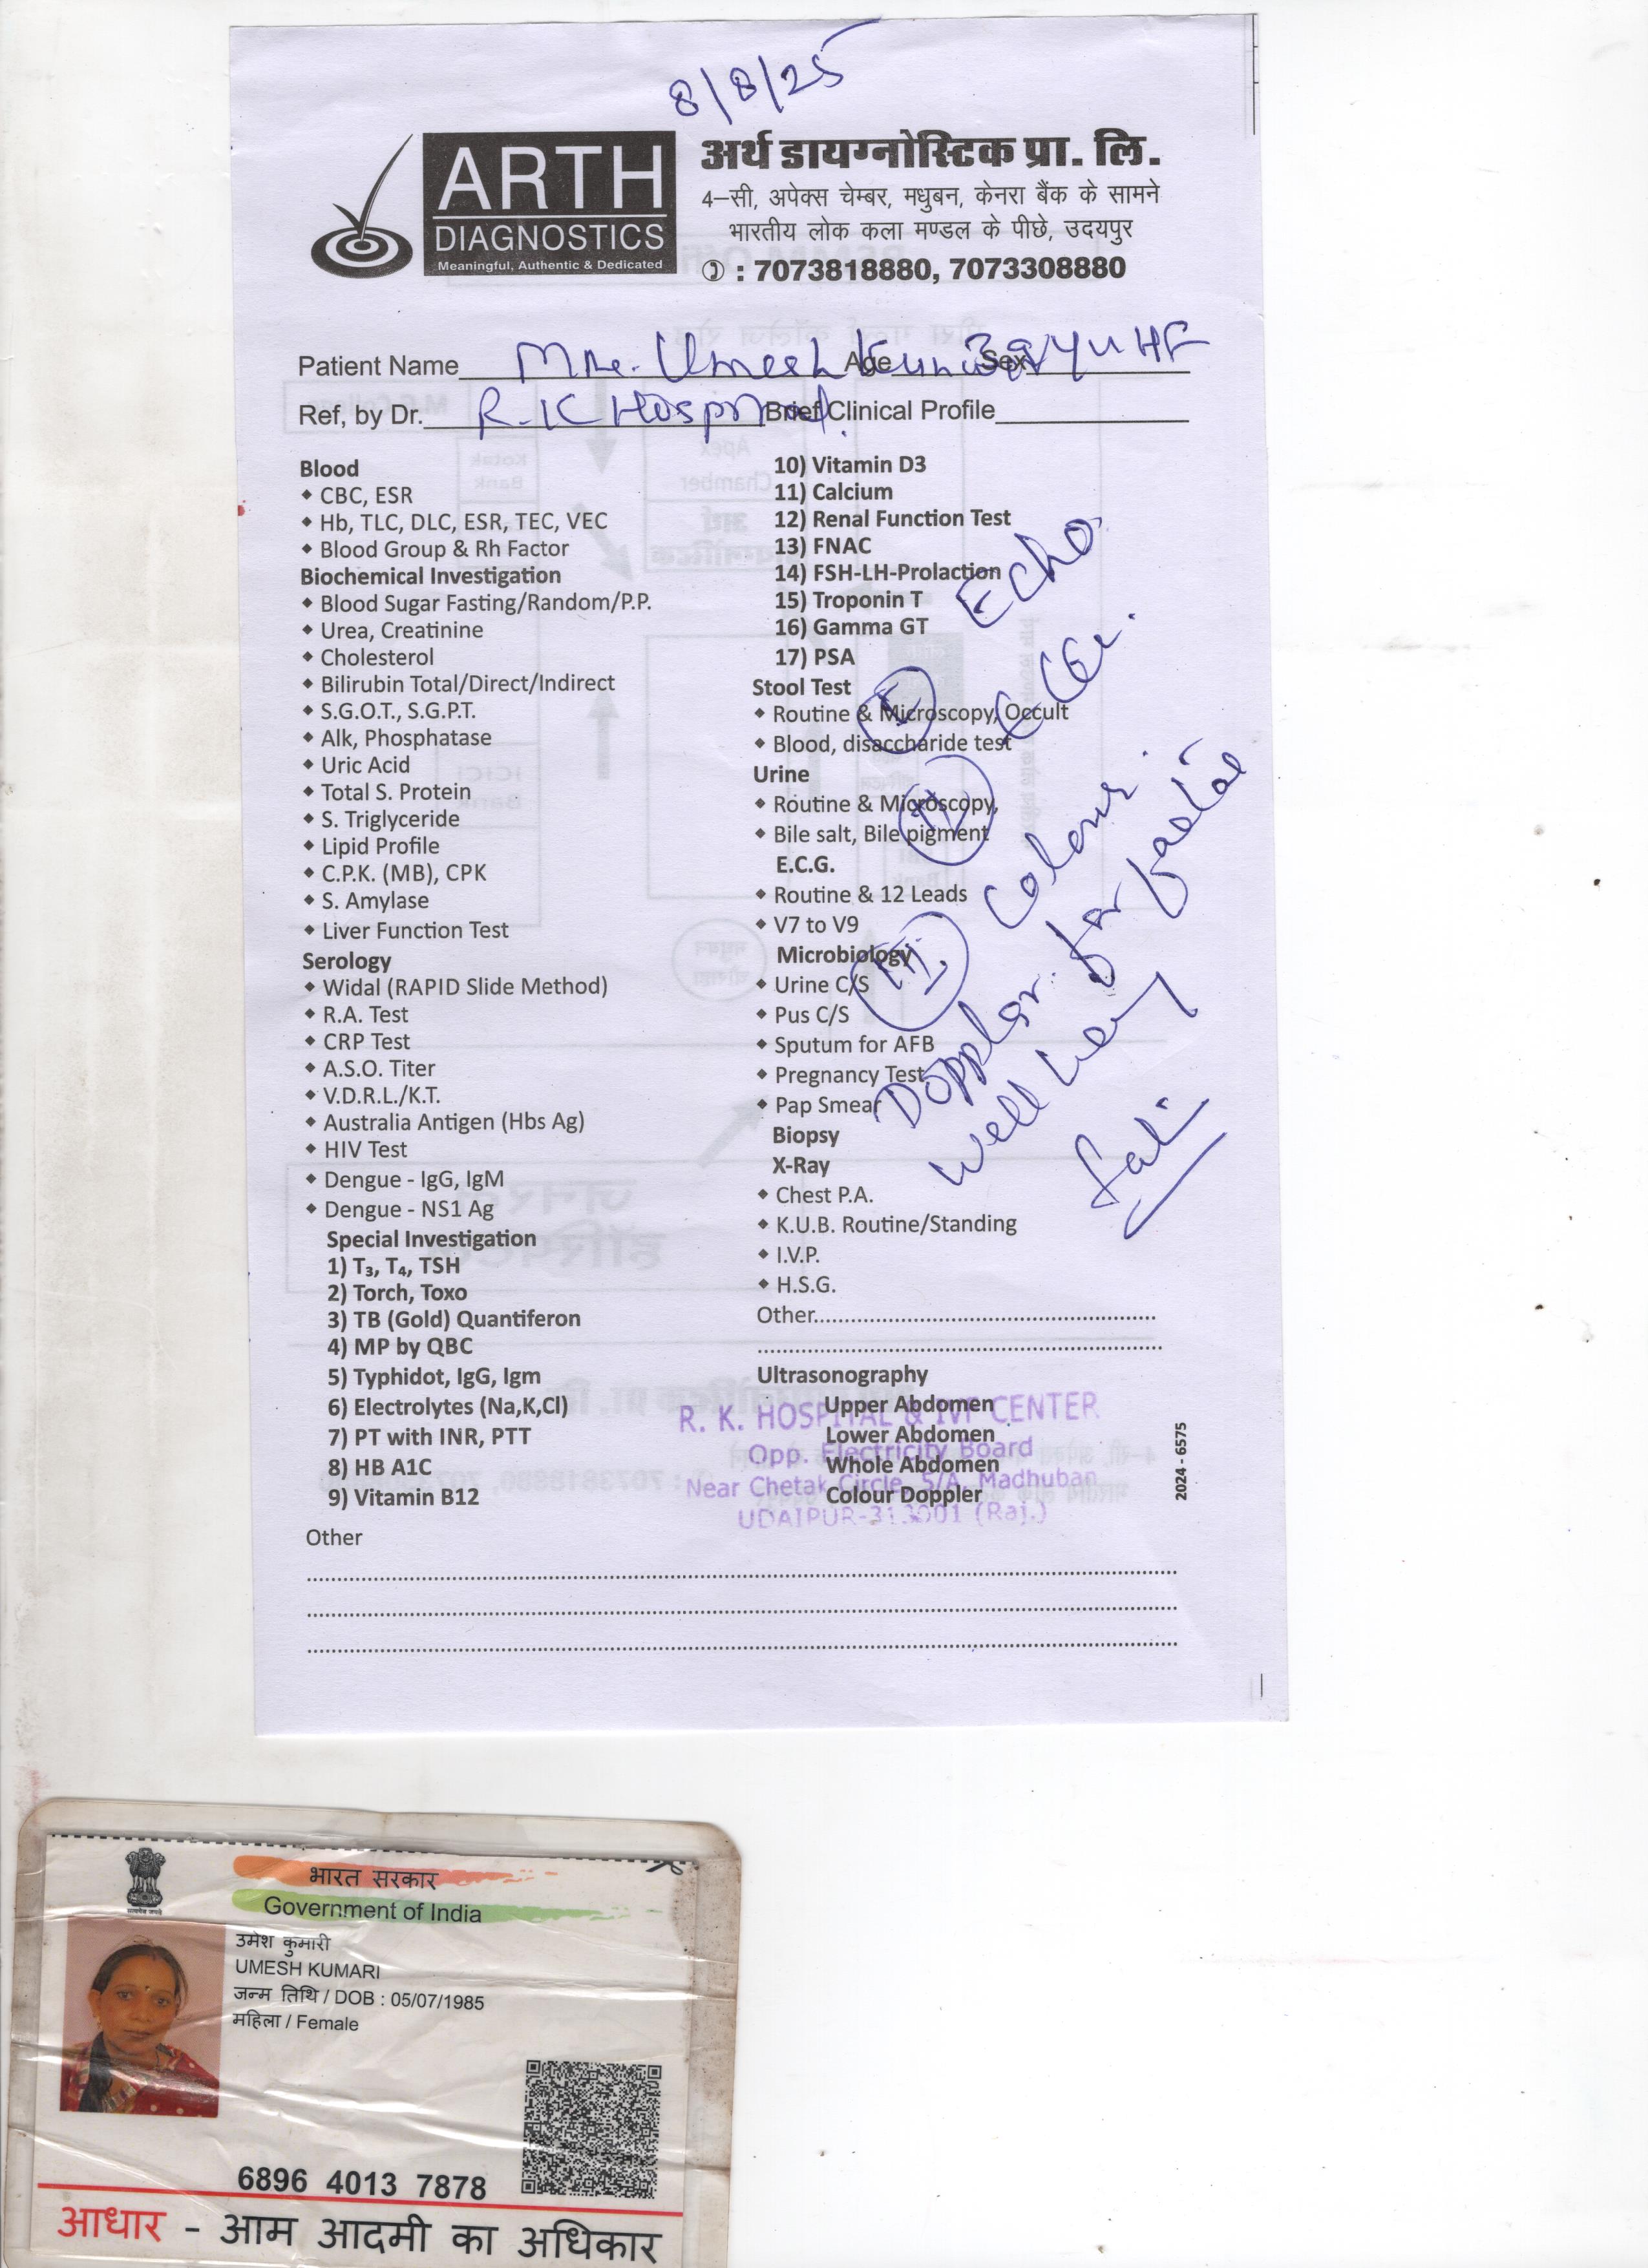 8/8/25
ARTH
DIAGNOSTICS
Meaningful, Authentic & Dedicated
अर्थ डायग्नोस्टिक प्रा. लि.
4–सी, अपेक्स चेम्बर, मधुबन, केनरा बैंक के सामने
भारतीय लोक कला मण्डल के पीछे, उदयपुर
: 7073818880, 7073308880
Patient Name Mrs. Umesh Age Sex
Ref, by Dr. R.K Hospital. Brief Clinical Profile
Blood
CBC, ESR
Hb, TLC, DLC, ESR, TEC, VEC
Blood Group & Rh Factor
Biochemical Investigation
Blood Sugar Fasting/Random/P.P.
Urea, Creatinine
Cholesterol
Bilirubin Total/Direct/Indirect
S.G.O.T., S.G.P.T.
Alk, Phosphatase
Uric Acid
Total S. Protein
S. Triglyceride
Lipid Profile
C.P.K. (MB), CPK
S. Amylase
Liver Function Test
Serology
Widal (RAPID Slide Method)
R.A. Test
CRP Test
A.S.O. Titer
V.D.R.L./K.T.
Australia Antigen (Hbs Ag)
HIV Test
Dengue - IgG, IgM
Dengue - NS1 Ag
Special Investigation
1) T₃, T₄, TSH
2) Torch, Toxo
3) TB (Gold) Quantiferon
4) MP by QBC
5) Typhidot, IgG, Igm
6) Electrolytes (Na,K,Cl)
7) PT with INR, PTT
8) HB A1C
9) Vitamin B12
10) Vitamin D3
11) Calcium
12) Renal Function Test
13) FNAC
14) FSH-LH-Prolaction
15) Troponin T
16) Gamma GT
17) PSA
Stool Test
Routine & Microscopy, Occult
Blood, disaccharide test
Urine
Routine & Microscopy,
Bile salt, Bile pigment
E.C.G.
Routine & 12 Leads
V7 to V9
Microbiology
Urine C/S
Pus C/S
Sputum for AFB
Pregnancy Test
Pap Smear
Biopsy
X-Ray
Chest P.A.
K.U.B. Routine/Standing
I.V.P.
H.S.G.
Other
Ultrasonography
Upper Abdomen
Lower Abdomen
Whole Abdomen
Colour Doppler
Other
I Echo.
II ECG.
III. Colour
Doppler for faetal
well being
R. K. HOSPITAL & IVF CENTER
Opp. Electricity Board
Near Chetak Circle, 5/A, Madhuban
UDAIPUR-313001 (Raj.)
2024 - 6575
भारत सरकार
Government of India
उमेश कुमारी
UMESH KUMARI
जन्म तिथि / DOB : 05/07/1985
महिला / Female
6896 4013 7878
आधार - आम आदमी का अधिकार